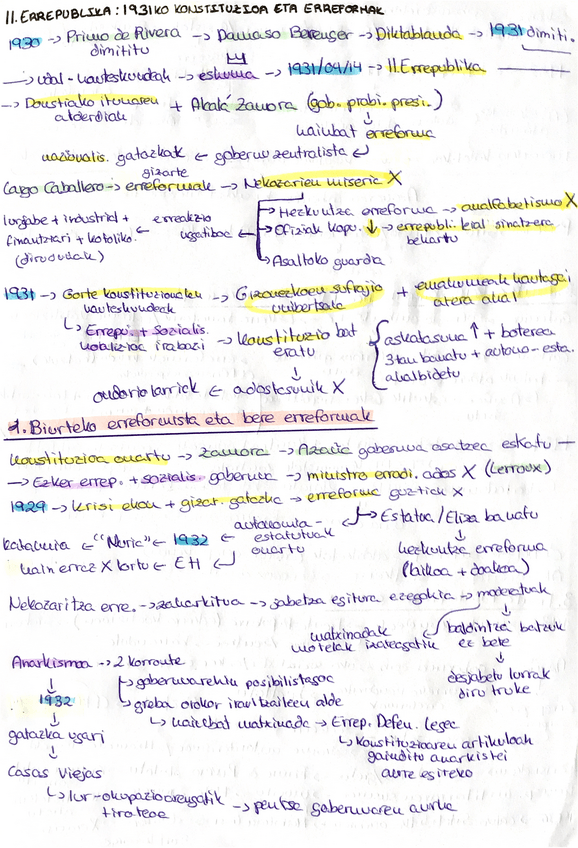 II. ERREPUBLIKA: 1931KO KONSTITUZIOA ETA ERREFORMAK
1930 → Primo de Rivera → Damaso Berenguer → Diktablanda → 1931 dimiti.
dimititu
→ udal-hauteskundeak → eskuina → 1931/04/14 → II.Errepublika
→ Donostiako itunaren + Alcala Zamora (gob. probi. presi.)
alderdiak
hainbat erreforma
nazionalis. gatazkak ← gobernu zentralista
gizarte
Largo Caballero → erreformak → Nekazarien miseria X
lurjabe + industrial + ← erreakzio ugariboa ← Hezkuntza erreforma → analfabetismo X
finantzari + katoliko. Ofizial kopu. ↓ → errepubli. leial sinatzera
(dirudunak) behartu
Asaltoko guardia
1931 → Gorte konstituzionalen → Gizonezkoen sufrajio + emakumeak hautagai
hauteskundeak unibertsala atera ahal
↳ Errepu. + Sozialis. → konstituzio bat askatasuna ↑ + boterea
koalizioa irabazi eratu 3tan banatu + autono-esta.
ahalbidetu
ondorio larriak ← adostasunik X
1. Biurteko erreformista eta bere erreformak
Konstituzioa onartu → Zamora → Azaña gobernua osatzea eskatu
→ Ezker errep. + sozialis. gobernua → ministro erradi. ados X (Lerroux)
1929 → krisi ekon + gizar. gatazka → erreforma guztiak X
autonomia- Estatua/Eliza banatu
Katalunia ← "Nuria" ← 1932 ← estatutuak
onartu
hezkuntza erreforma
hain erraz X lortu ← EH (laikoa + doakoa)
Nekazaritza erre. → zaharkitua → jabetza egitura ezegokia → moteletuak
matxinadak baldintza batzuk
motelak izateagatik ez bete
Anarkismoa → 2 korronte
desjabetu lurrak
diru truke
gobernuarekin posibilistagoa
1932 greba orokor iraultzaileen alde
↳ hainbat matxinada → Errep. Defen. Legea
gatazka ugari ↳ Konstituzioaren artikuloak
gainditu anarkistei
aurre egiteko
Casas Viejas
↳ lur-okupazioarengatik → prentsa gobernuaren aurka
tiroteoa